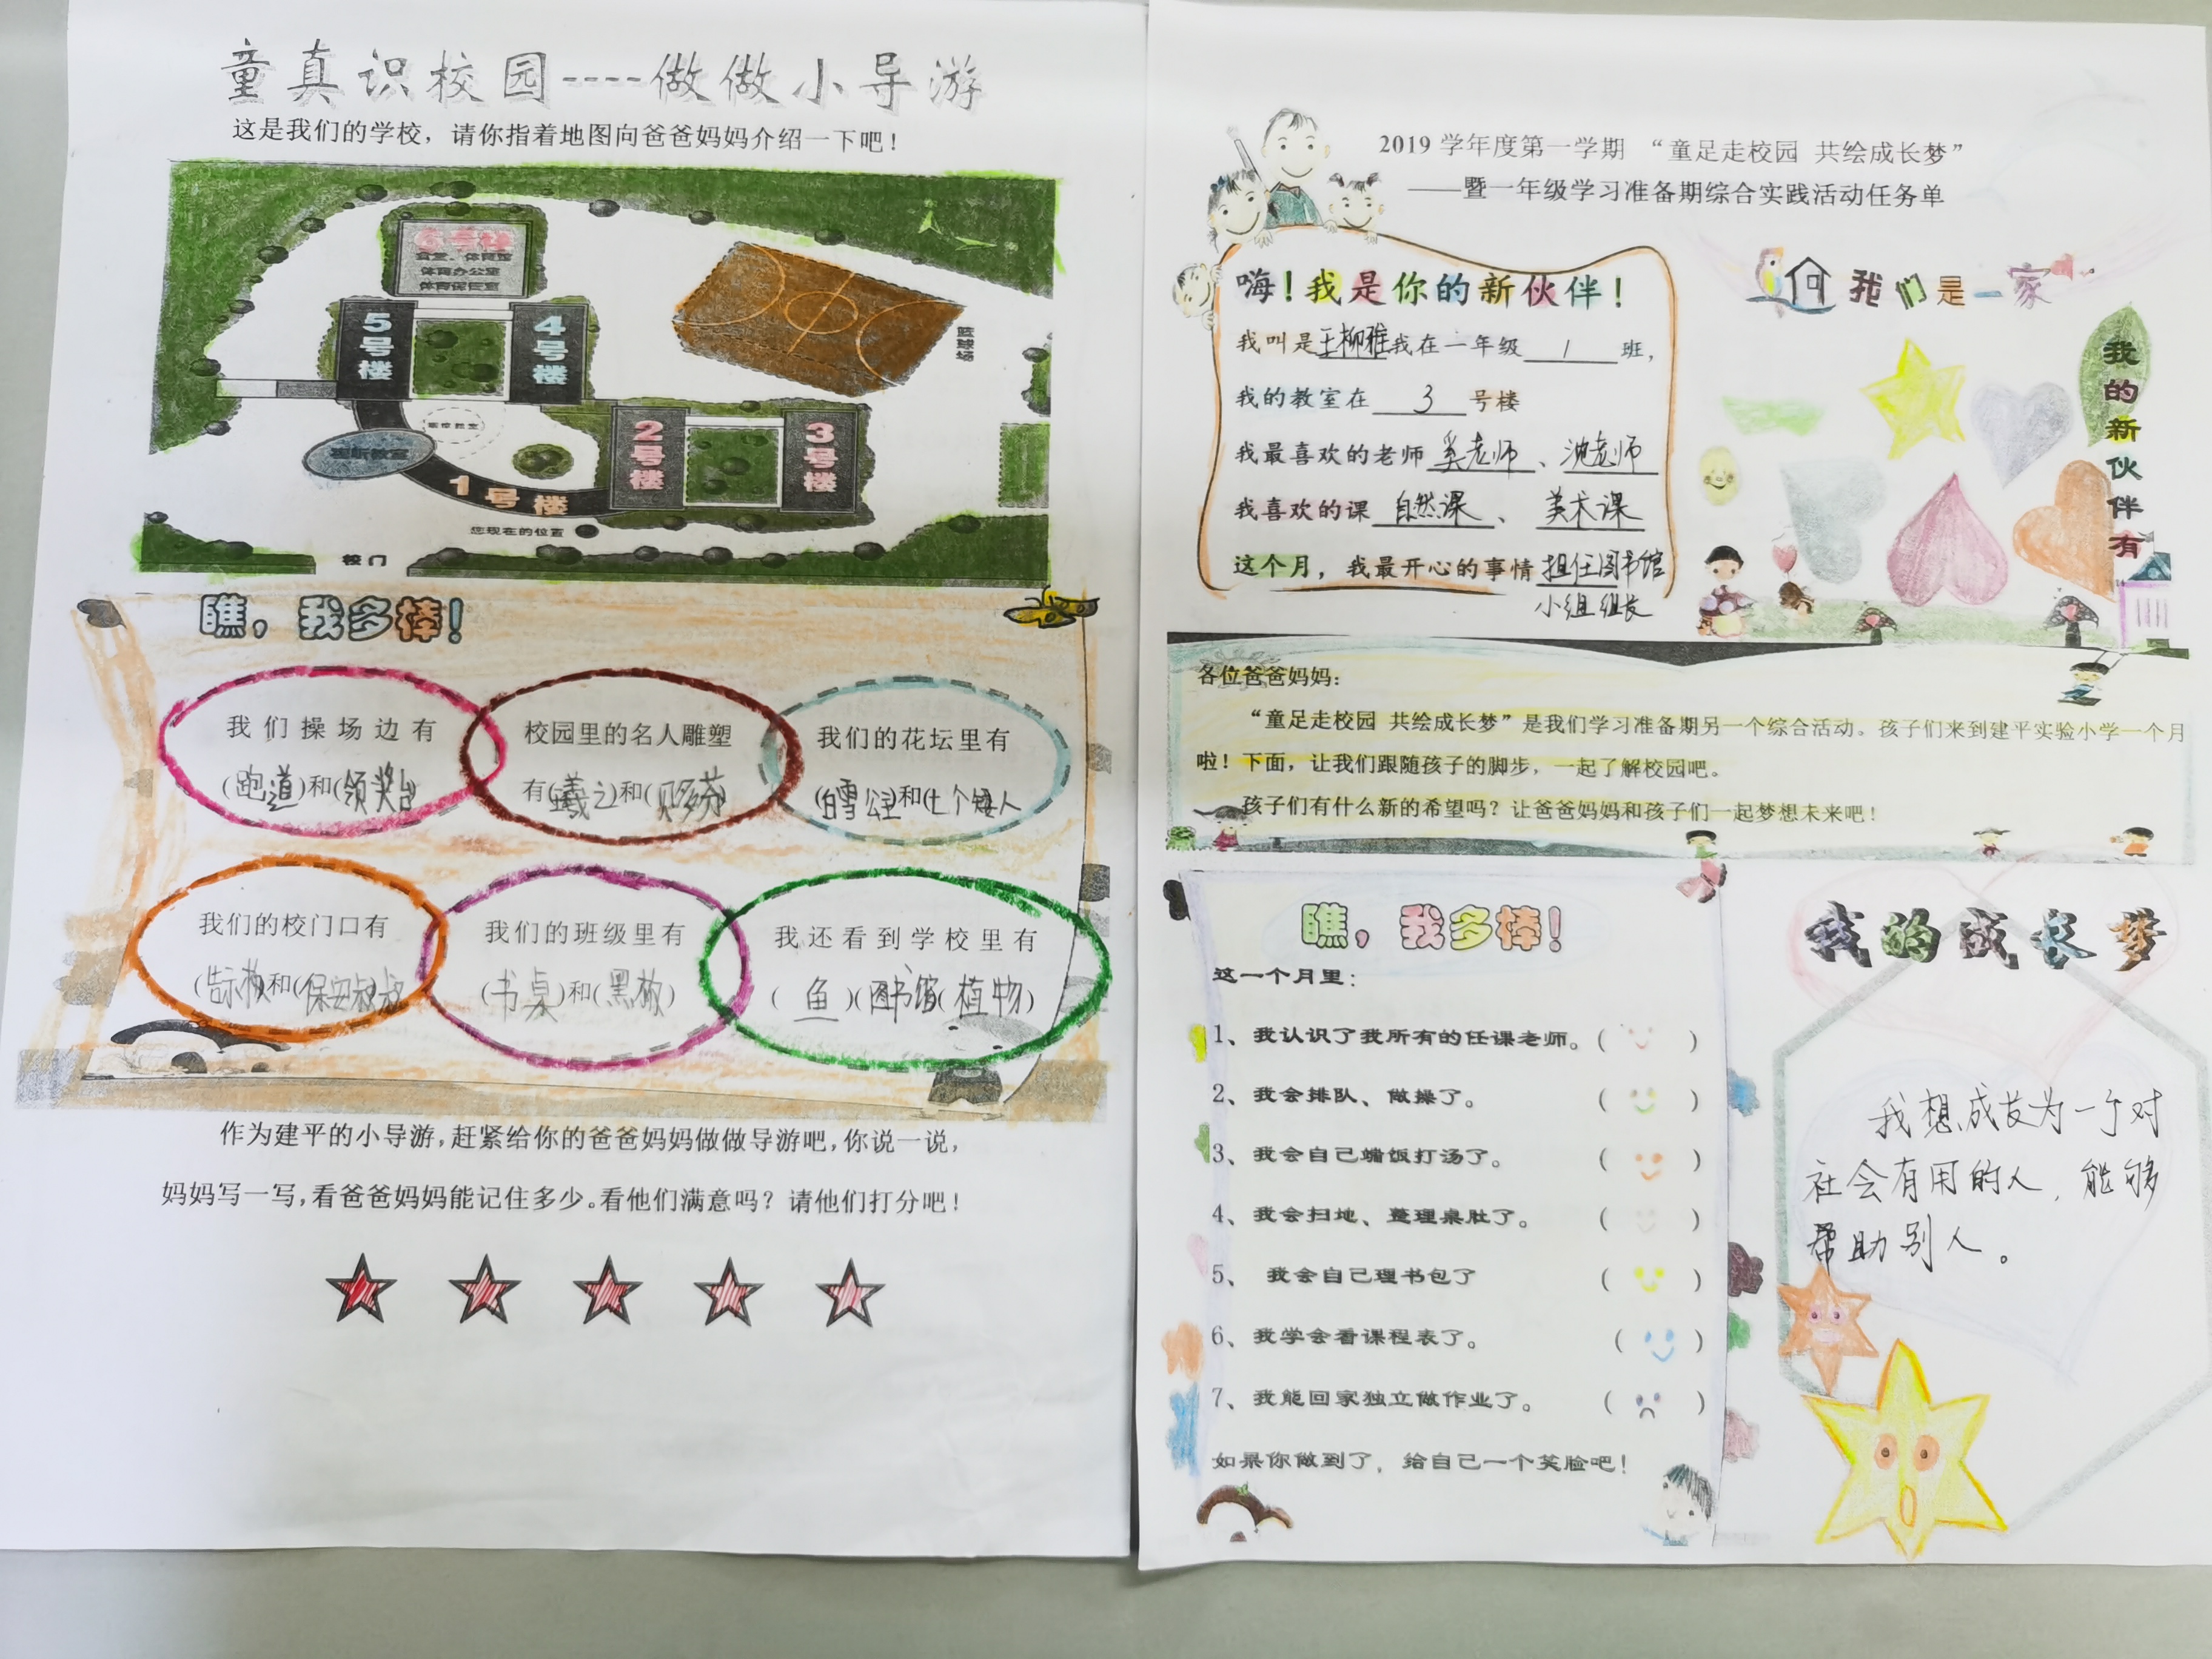 童真识校园----做做小导游
这是我们的学校，请你指着地图向爸爸妈妈介绍一下吧！
6号楼
食堂、体育馆
体育办公室
体育保管室
5号楼
4号楼
篮球场
2号楼
3号楼
1号楼
您现在的位置
校门
瞧，我多棒！
我们操场边有
(跑道)和(领奖台)
校园里的名人雕塑
有(羲之)和(贝多芬)
我们的花坛里有
(白雪公主)和(七个矮人
我们的校门口有
(告示板)和(保安叔叔
我们的班级里有
(书桌)和(黑板)
我还看到学校里有
(鱼)(图书馆(植物)
作为建平的小导游，赶紧给你的爸爸妈妈做做导游吧，你说一说，
妈妈写一写，看爸爸妈妈能记住多少。看他们满意吗？请他们打分吧！
2019学年度第一学期 “童足走校园 共绘成长梦”
——暨一年级学习准备期综合实践活动任务单
嗨！我是你的新伙伴！
我叫是王柳雅我在一年级1班，
我的教室在3号楼
我最喜欢的老师奚老师、沈老师
我喜欢的课自然课、美术课
这个月，我最开心的事情担任图书馆
小组组长
我们是一家
我的新伙伴有
各位爸爸妈妈：
“童足走校园 共绘成长梦”是我们学习准备期另一个综合活动。孩子们来到建平实验小学一个月
啦！下面，让我们跟随孩子的脚步，一起了解校园吧。
孩子们有什么新的希望吗？让爸爸妈妈和孩子们一起梦想未来吧！
瞧，我多棒！
这一个月里：
1、我认识了我所有的任课老师。( )
2、我会排队、做操了。( )
3、我会自己端饭打汤了。( )
4、我会扫地、整理桌肚了。( )
5、 我会自己理书包了 ( )
6、我学会看课程表了。( )
7、我能回家独立做作业了。( )
如果你做到了，给自己一个笑脸吧！
我的成长梦
我想成长为一个对
社会有用的人，能够
帮助别人。